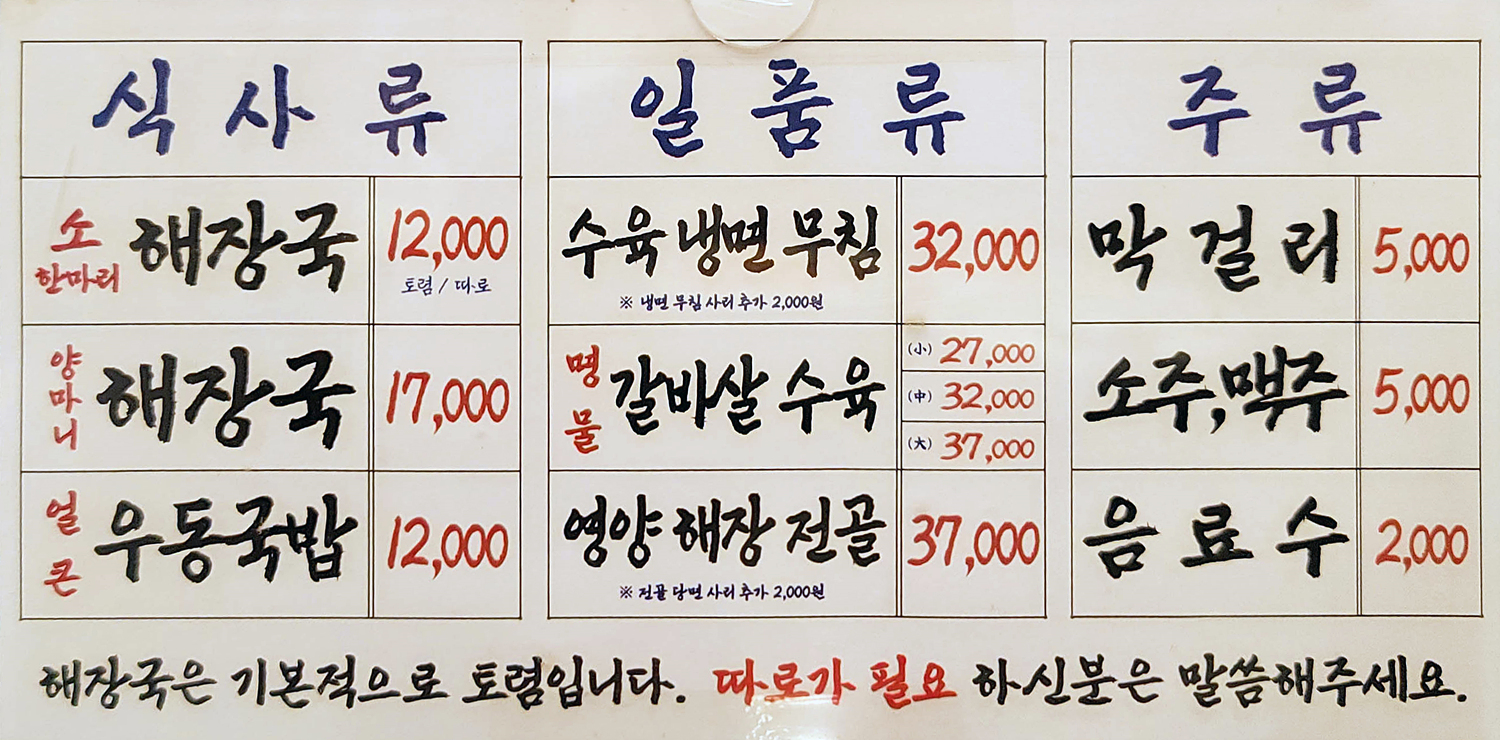 식사류
소 한마리 해장국 12,000
토렴 / 따로
양마니 해장국 17,000
얼큰 우동국밥 12,000
일품류
수육 냉면 무침 32,000
※ 냉면 무침 사리 추가 2,000원
명물 갈비살 수육
(小) 27,000
(中) 32,000
(大) 37,000
영양 해장 전골 37,000
※ 전골 당면 사리 추가 2,000원
주류
막걸리 5,000
소주,맥주 5,000
음료수 2,000
해장국은 기본적으로 토렴입니다. 따로가 필요 하신분은 말씀해주세요.